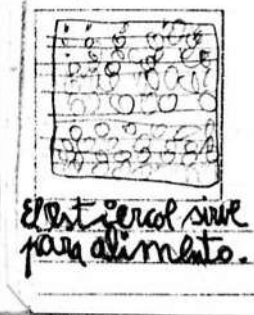 el estiercol sirve
para alimento.